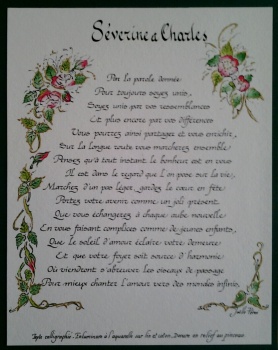 Séverine à Charles
Par la parole donnée
Pour toujours soyez unis,
Soyez unis par vos ressemblances
Et plus encore par vos différences
Vous pourrez ainsi partager et vous enrichir,
Sur la longue route vous marcherez ensemble
Pensez qu'à tout instant le bonheur est en vous
Il est dans le regard que l'on pose sur la vie,
Marchez d'un pas léger, gardez le cœur en fête
Portez votre avenir comme un joli présent
Que vous échangerez à chaque aube nouvelle
En vous faisant complices comme de jeunes enfants,
Que le soleil d'amour éclaire votre demeure
Et que votre foyer soit source d'harmonie
Où viendront s'abreuver les oiseaux de passage
Pour mieux chanter l'amour vers des mondes infinis.
Texte calligraphié. Enluminure à l'aquarelle sur et coton. Dorure en relief au pinceau